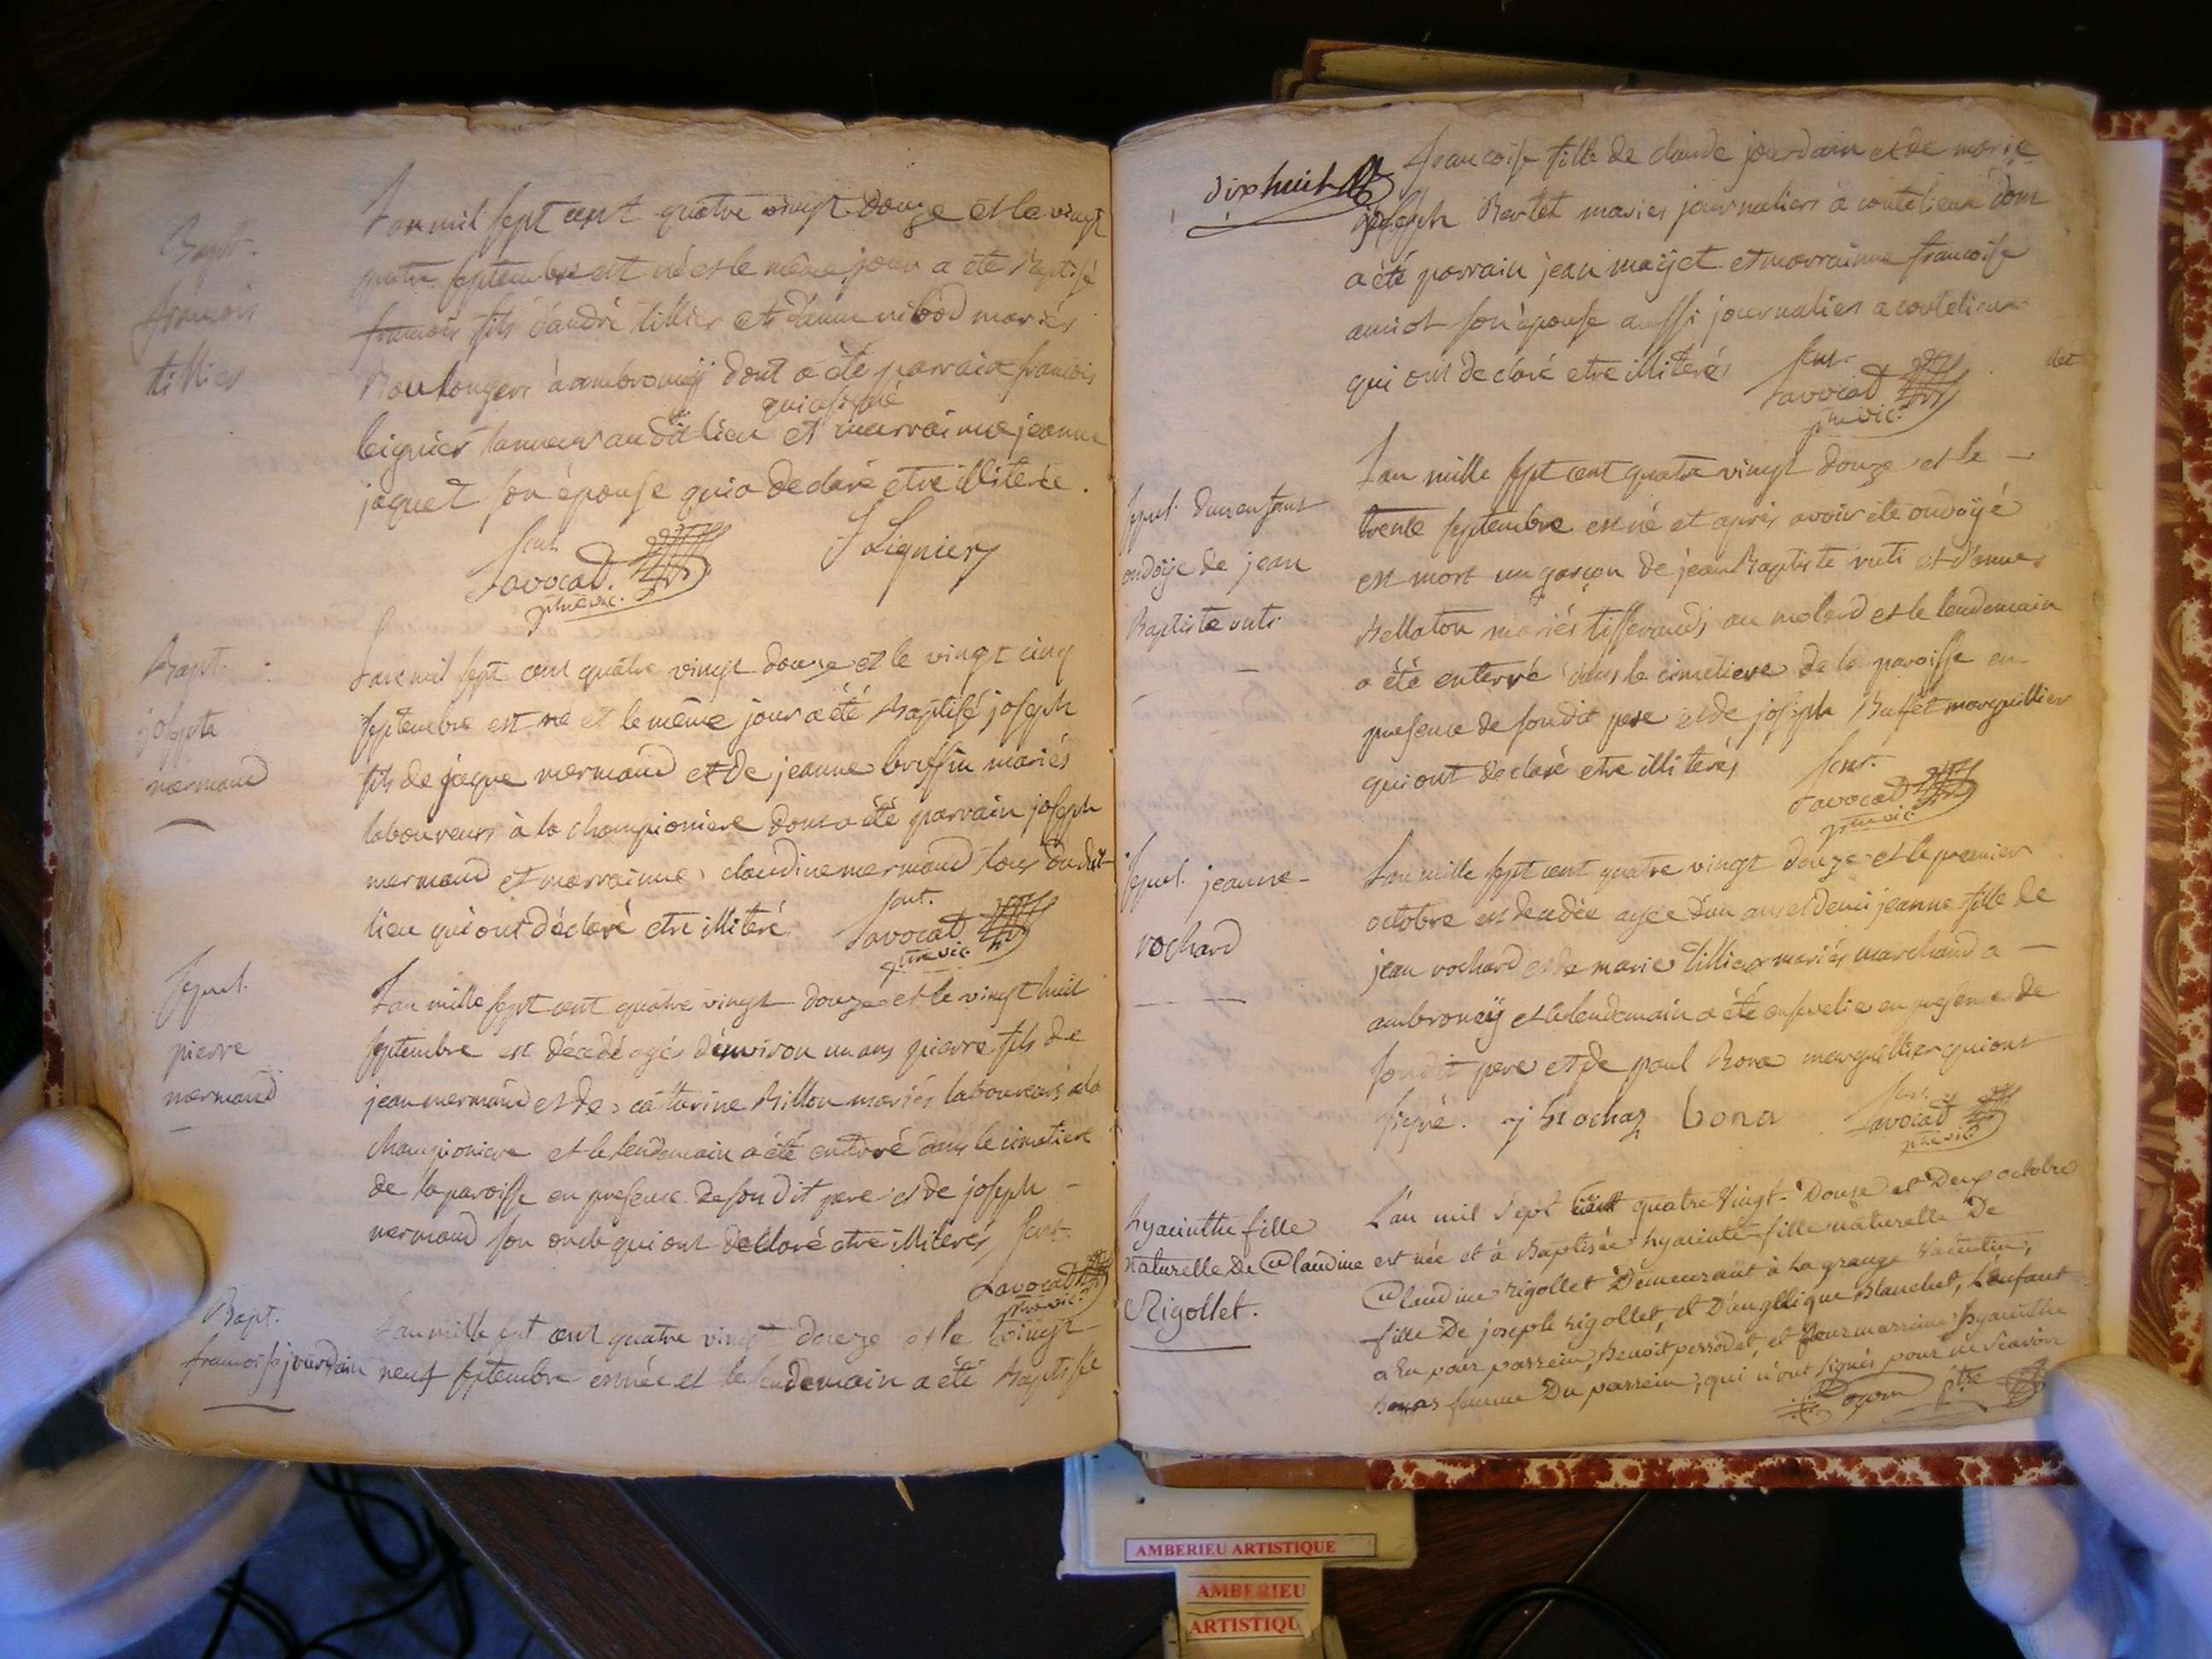 Bapt.
francois
tillier
L'an mil sept cent quatre vingt douze et le vingt
quatre septembre est né et le même jour a été Baptisé
francois fils d'andré tillier et d'anne nibod mariés
Boulangers à ambronaÿ dont a été parrain francois
qui a signé
leignier tanneur au dit lieu et marrainne jeanne
jaquet son épouse qui a declaré etre illiterée.
Lavocat
ptre vic.
F Ligniers
Bapt.
joseph
mermand
L'an mil sept cent quatre vingt douze et le vingt cinq
septembre est né et le même jour a été Baptisé joseph
fils de jaque mermand et de jeanne breffin mariés
laboureurs à la championiere dont a été parrain joseph
mermand et marrainne claudine mermand tous du dit
lieu qui ont déclaré etre illiteré
Lavocat
ptre vic.
Sepul.
pierre
mermand
L'an mille sept cent quatre vingt douze et le vingt huit
septembre est décédé agé d'environ un ans pierre fils de
jean mermand et de catherine Billon mariés laboureurs a la
championiere et le lendemain a été enterré dans le cimetiere
de la paroisse en presence de son dit pere et de joseph
mermand son oncle qui ont declaré etre illiterés
Lavocat
ptre vic.
Bapt.
francoise jourdain
L'an mille sept cent quatre vingt douze et le vingt
neuf septembre est née et le lendemain a été Baptisée
dix huit
francoise fille de claude jourdain et de marie
joseph Bertet mariés journaliers à coutelieux dont
a été parrain jean maÿet et marrainne francoise
amiot son épouse aussi journaliers a coutelieux
qui ont declaré etre illiterés
Lavocat
ptre vic.
Sepul. d'un enfant
ondoÿé de jean
Baptiste ruti
L'an mille sept cent quatre vingt douze et le
trente septembre est né et après avoir été ondoÿé
est mort un garçon de jean Baptiste ruti et d'anne
Bellaton mariés tisserands au molard et le lendemain
a été enterré dans le cimetiere de la paroisse en
presence de son dit pere et de joseph Buffet marguillier
qui ont declaré etre illiterés
Lavocat
ptre vic.
Sepul. jeanne
rochard
L'an mille sept cent quatre vingt douze et le premier
octobre est decedée agée d'un ans et demi jeanne fille de
jean rochard et de marie tillier mariés marchand a
ambronaÿ et le lendemain a été ensevelie en presence de
son dit pere et de paul Bona marguillier qui ont
signé. j Rochaz bona
Lavocat
ptre vic.
hyacinthe fille
naturelle De Claudine
Rigollet.
L'an mil Sept cent quatre Vingt-Douse et Deux octobre
est née et à Baptisée hyacinte fille naturelle De
Claudine rigollet Demeurant à La grange Valentin,
fille De joseph rigollet, et D'angélique Blanchet, L'enfant
a Eu pour parrein, Benoit perrodet, et pour marreine hyacinthe
femme Du parrein, qui n'ont signés pour ne Scavoir
ptre
AMBERIEU ARTISTIQUE
AMBERIEU
ARTISTIQU